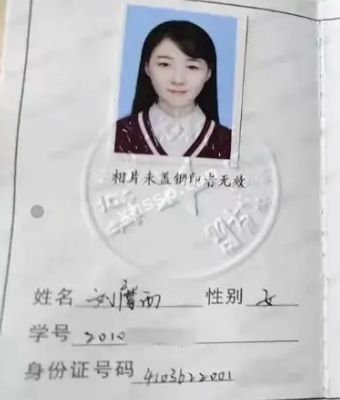 相片未盖钢印者无效
姓名 刘 性别 女
学号 2010
身份证号码 4103622001